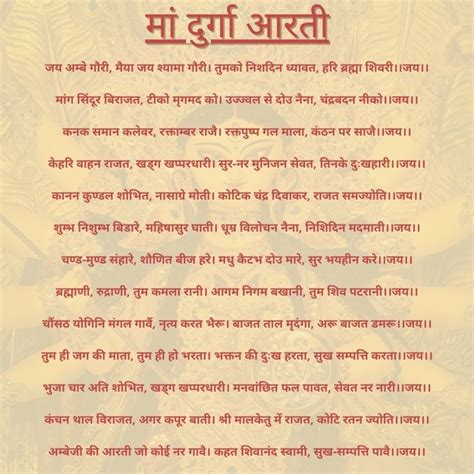 मां दुर्गा आरती
जय अम्बे गौरी, मैया जय श्यामा गौरी। तुमको निशदिन ध्यावत, हरि ब्रह्मा शिवरी।।जय।।
मांग सिंदूर बिराजत, टीको मृगमद को। उज्ज्वल से दोउ नैना, चंद्रबदन नीको।।जय।।
कनक समान कलेवर, रक्ताम्बर राजै। रक्तपुष्प गल माला, कंठन पर साजै।।जय।।
केहरि वाहन राजत, खड्ग खप्परधारी। सुर-नर मुनिजन सेवत, तिनके दुःखहारी।।जय।।
कानन कुण्डल शोभित, नासाग्रे मोती। कोटिक चंद्र दिवाकर, राजत समज्योति।।जय।।
शुम्भ निशुम्भ बिडारे, महिषासुर घाती। धूम्र विलोचन नैना, निशिदिन मदमाती।।जय।।
चण्ड-मुण्ड संहारे, शौणित बीज हरे। मधु कैटभ दोउ मारे, सुर भयहीन करे।।जय।।
ब्रह्माणी, रुद्राणी, तुम कमला रानी। आगम निगम बखानी, तुम शिव पटरानी।।जय।।
चौंसठ योगिनि मंगल गावैं, नृत्य करत भैरू। बाजत ताल मृदंगा, अरू बाजत डमरू।।जय।।
तुम ही जग की माता, तुम ही हो भरता। भक्तन की दुःख हरता, सुख सम्पत्ति करता।।जय।।
भुजा चार अति शोभित, खड्ग खप्परधारी। मनवांछित फल पावत, सेवत नर नारी।।जय।।
कंचन थाल विराजत, अगर कपूर बाती। श्री मालकेतु में राजत, कोटि रतन ज्योति।।जय।।
अम्बेजी की आरती जो कोई नर गावै। कहत शिवानंद स्वामी, सुख-सम्पत्ति पावै।।जय।।